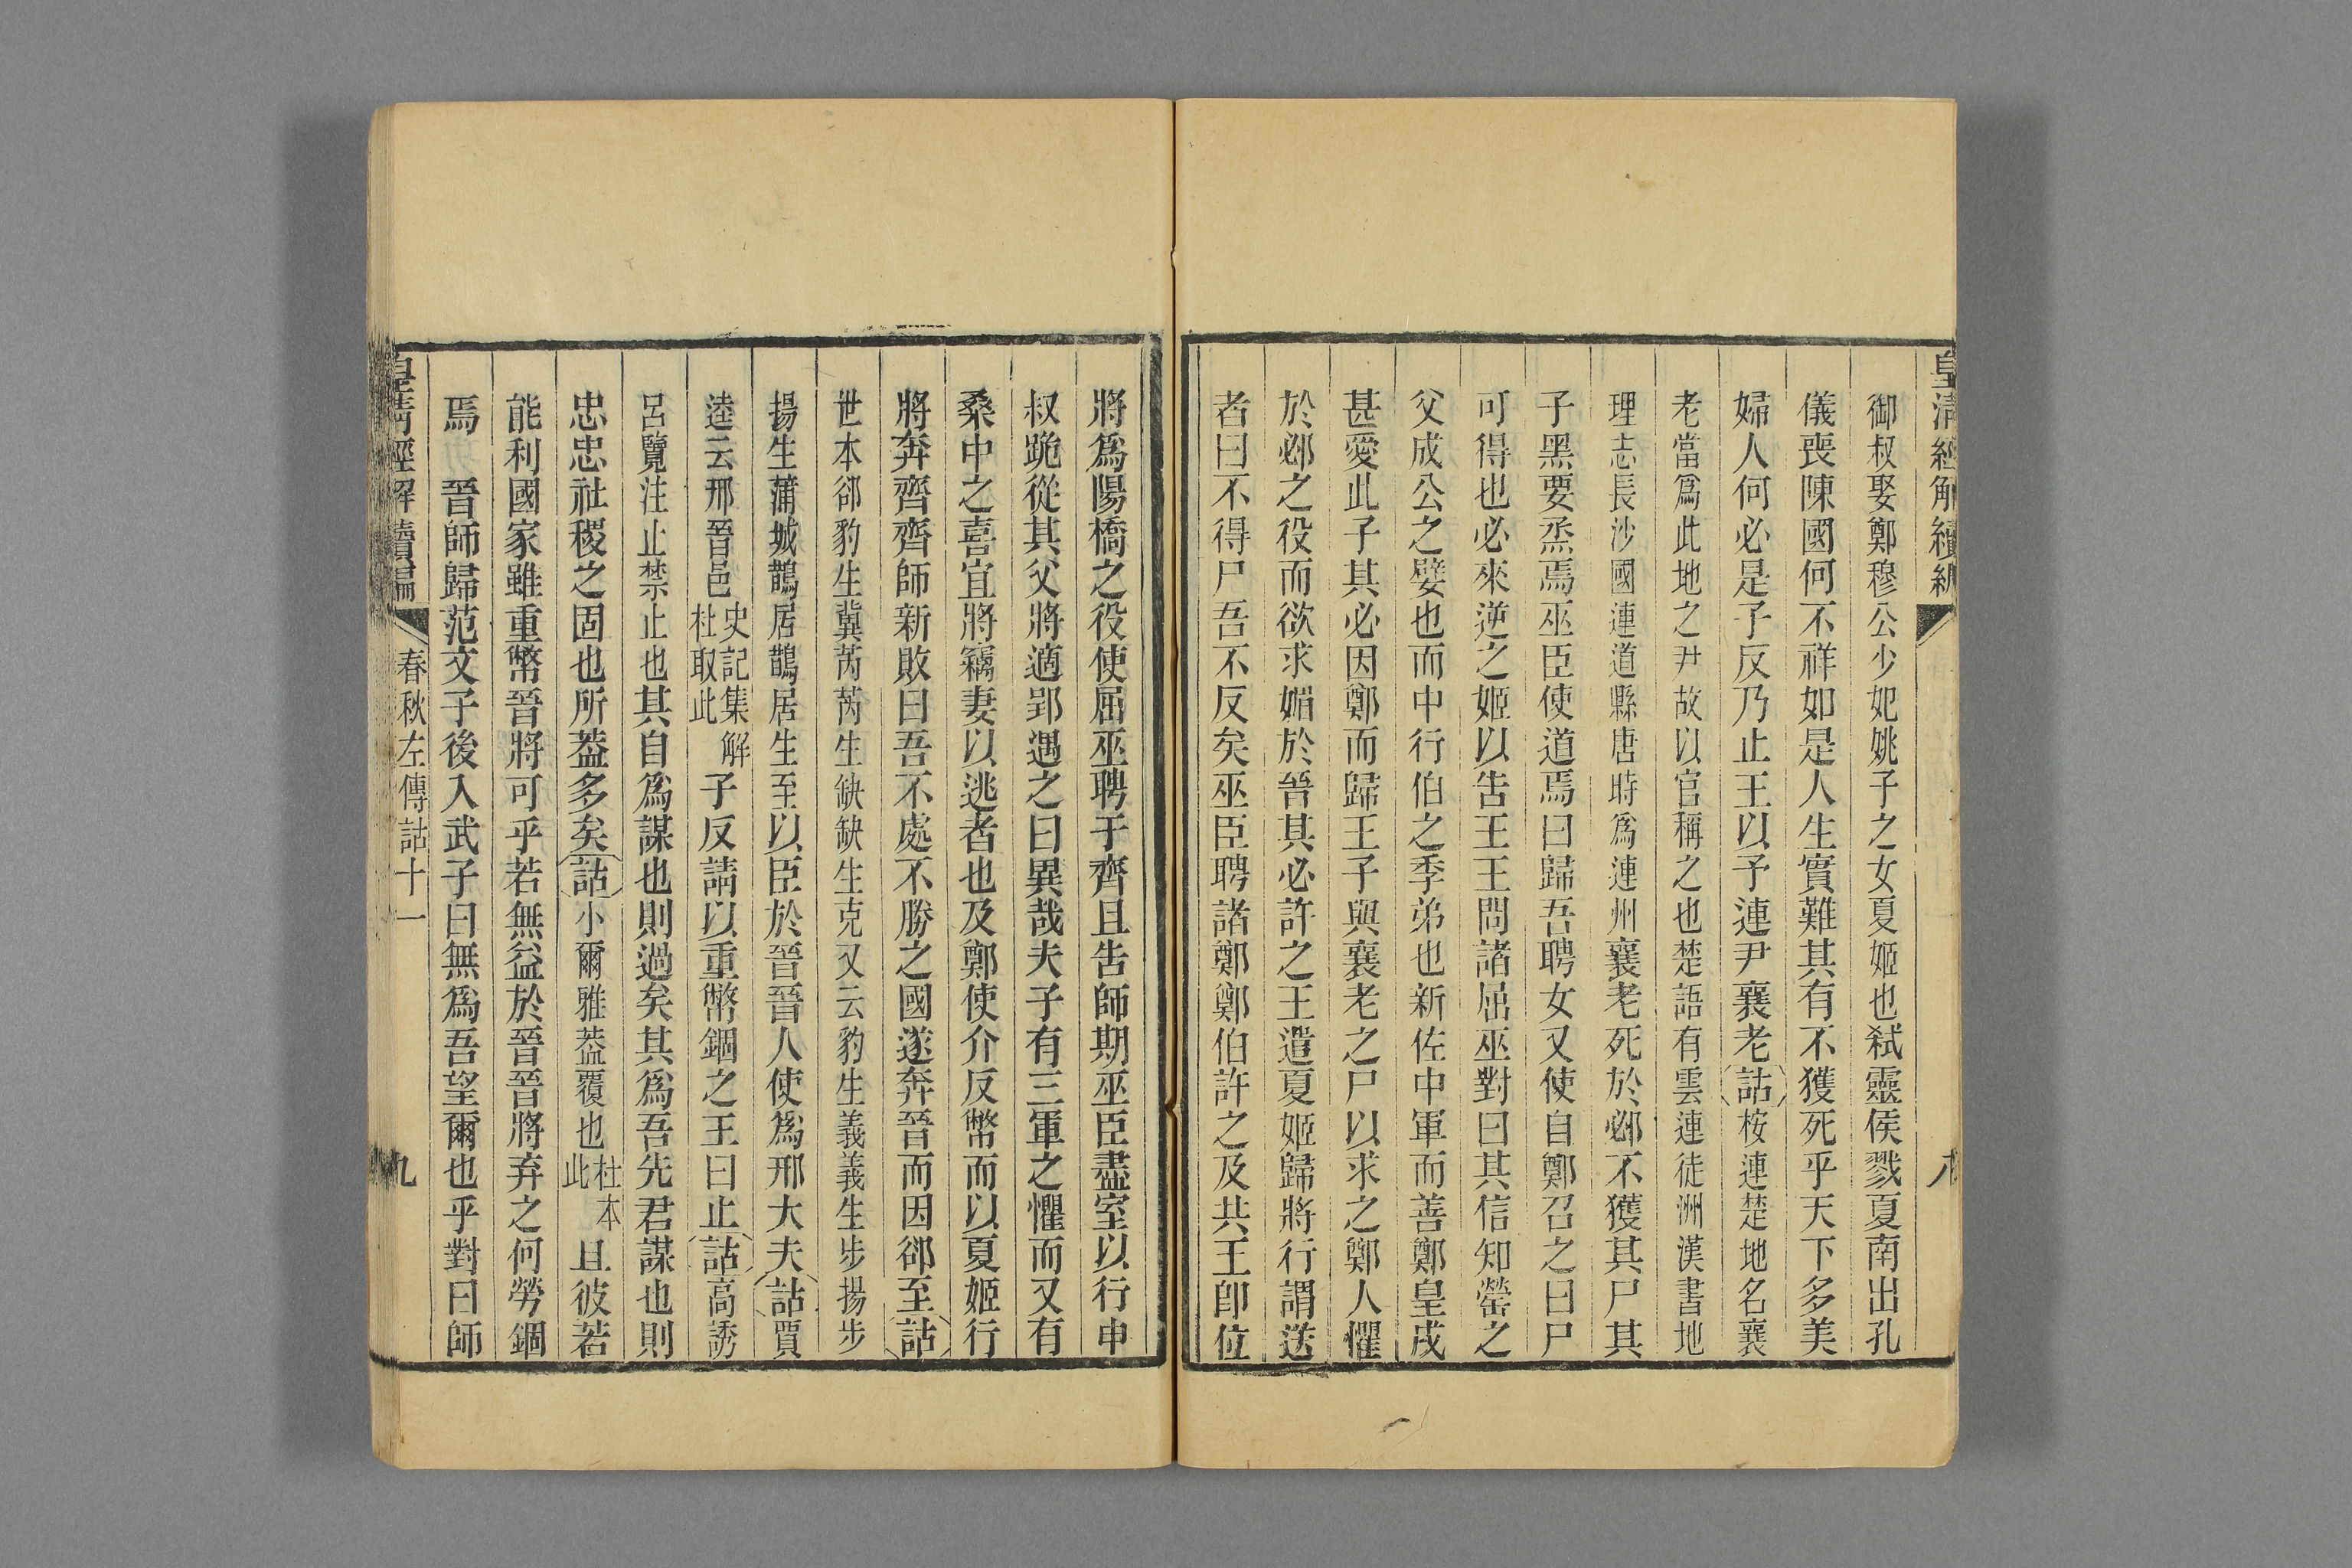 皇清經解續編
八
御叔娶鄭穆公少妃姚子之女夏姬也弒靈侯戮夏南出孔
儀喪陳國何不祥如是人生實難其有不獲死乎天下多美
婦人何必是子反乃止王以予連尹襄老詁桉連楚地名襄
老當爲此地之尹故以官稱之也楚語有雲連徒洲漢書地
理志長沙國連道縣唐時爲連州襄老死於邲不獲其尸其
子黑要烝焉巫臣使道焉曰歸吾聘女又使自鄭召之曰尸
可得也必來逆之姬以告王王問諸屈巫對曰其信知罃之
父成公之嬖也而中行伯之季弟也新佐中軍而善鄭皇戌
甚愛此子其必因鄭而歸王子與襄老之尸以求之鄭人懼
於邲之役而欲求媚於晉其必許之王遣夏姬歸將行謂送
者曰不得尸吾不反矣巫臣聘諸鄭鄭伯許之及共王卽位
將爲陽橋之役使屈巫聘于齊且告師期巫臣盡室以行申
叔跪從其父將適郢遇之曰異哉夫子有三軍之懼而又有
桑中之喜宜將竊妻以逃者也及鄭使介反幣而以夏姬行
將奔齊齊師新敗曰吾不處不勝之國遂奔晉而因郤至詁
世本郤豹生冀芮芮生缺缺生克又云豹生義義生步揚步
揚生蒲城鵲居鵲居生至以臣於晉晉人使爲邢大夫詁賈
逵云邢晉邑史記集解杜取此子反請以重幣錮之王曰止詁高誘
呂覽注止禁止也其自爲謀也則過矣其爲吾先君謀也則
忠忠社稷之固也所葢多矣詁小爾雅葢覆也杜本此且彼若
能利國家雖重幣晉將可乎若無益於晉晉將弃之何勞錮
焉　晉師歸范文子後入武子曰無爲吾望爾也乎對曰師
皇清經解續編
春秋左傳詁十一
九